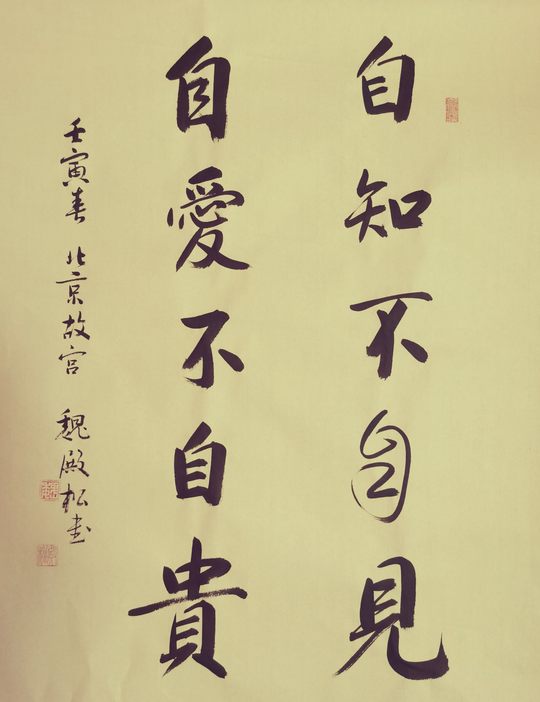 自知不自見
自愛不自貴
壬寅春 北京故宫 魏殿松书